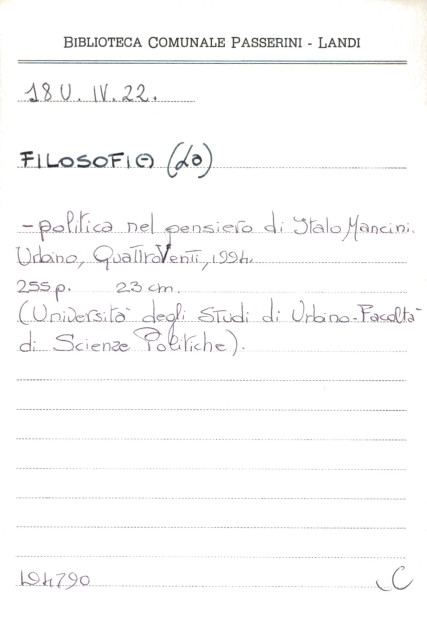 BIBLIOTECA COMUNALE PASSERINI - LANDI
18 U. IV. 22.
FILOSOFIA (La)
- politica nel pensiero di Italo Mancini.
Urbino, QuattroVenti, 1994.
255 p. 23 cm.
(Università degli Studi di Urbino - Facoltà
di Scienze Politiche).
194790 C